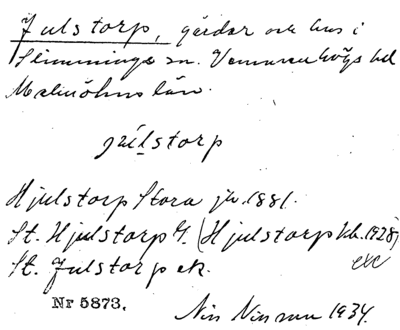 Julstorp, gårdar och hus i
Slimminge sn. Vemmenhögs hd
Malmöhus län.
julstorp
Hjulstorp Stora jb. 1881.
St. Hjulstorp G. (Hjulstorp kb. 1928)
St. Julstorp ek. exc
Nr 5873. Nils Nilsson 1934.